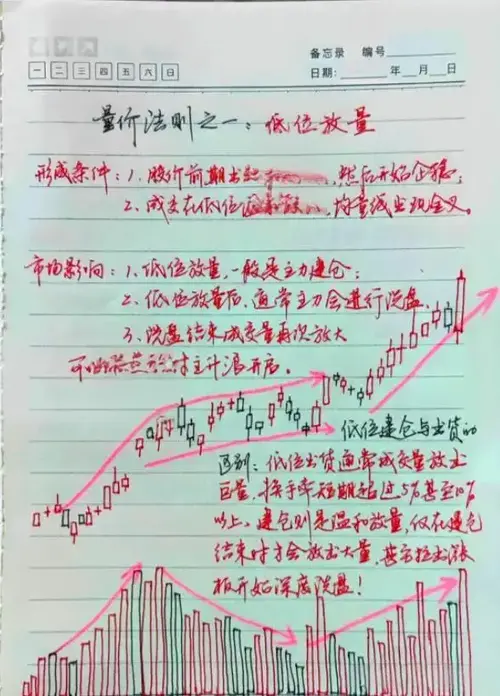 备忘录 编号
一 二 三 四 五 六 日
日期: 年 月 日
量价法则之一:低位放量
形成条件:1、股价前期出现 ,然后开始企稳;
2、成交在低位 ,均量线出现金叉。
市场影响:1、低位放量,一般是主力建仓;
2、低位放量后,通常主力会进行洗盘、
3、洗盘结束成交量再次放大
主升浪开启。
低位建仓与出货的
区别:低位出货通常成交量放出
巨量,换手率短期超过5%甚至10%
以上。建仓则是温和放量,仅在建仓
结束时才会放出大量,甚至拉出涨
板开始深度洗盘!